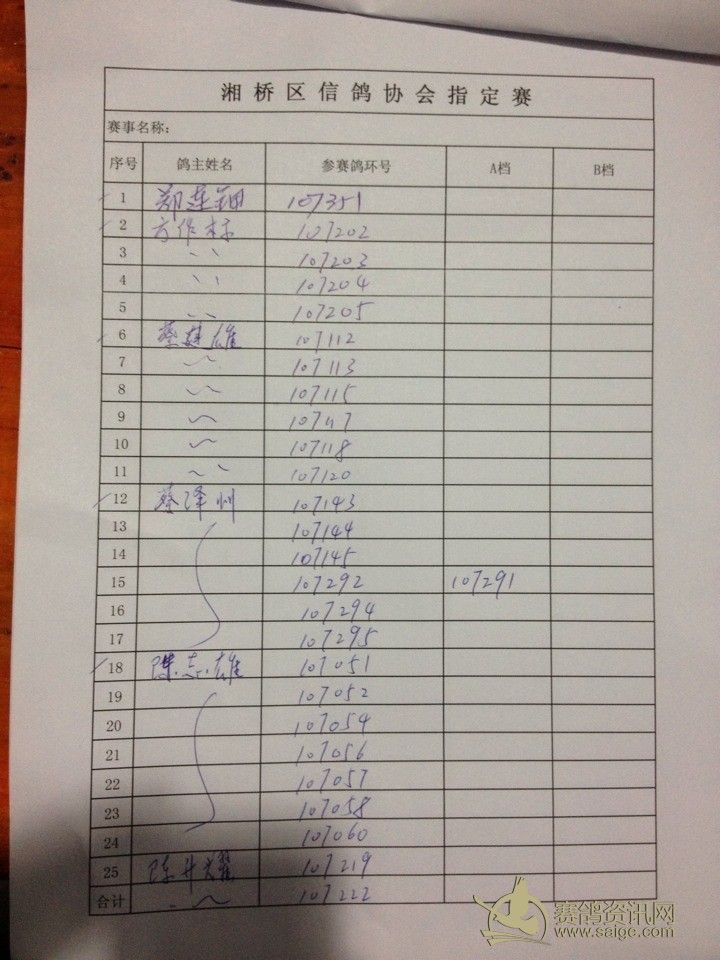 湘桥区信鸽协会指定赛
赛事名称:
序号 鸽主姓名 参赛鸽环号 A档 B档
1 郑连钿 107351
2 方作标 107202
3 〃 107203
4 〃 107204
5 〃 107205
6 蔡建雄 107112
7 〃 107113
8 〃 107115
9 〃 107117
10 〃 107118
11 〃 107120
12 蔡泽州 107143
13 107144
14 107145
15 107292 107291
16 107294
17 107295
18 陈志雄 107051
19 107052
20 107054
21 107056
22 107057
23 107058
24 107060
25 陈 107219
合计 〃 107222
赛鸽资讯网
www.saige.com